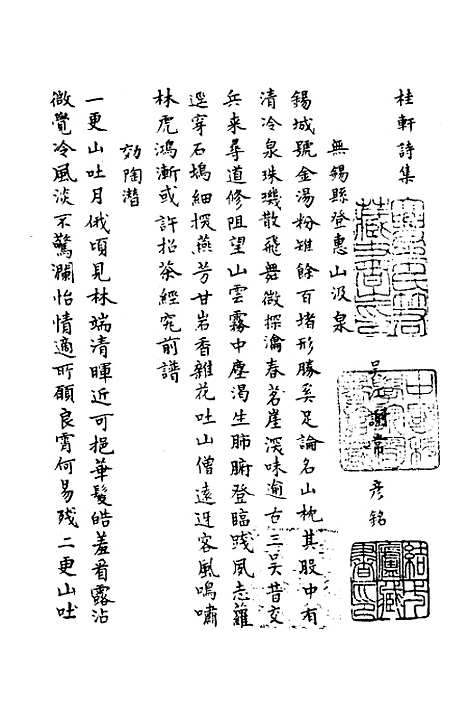 桂軒詩集
吳江謝常 彥銘
無錫縣登惠山汲泉
錫城號金湯粉雉餘百堵形勝奚足論名山枕其股中有
清冷泉珠璣散飛舞微探瀹春茗崖深味逾古三吳昔交
兵来尋道修阻望山雲霧中塵渴生肺腑登臨踐夙志蘿
逕穿石塢細探燕芳甘岩香雜花吐山僧遠迓客風鳴嘯
林虎鴻漸或許招茶經究前譜
効陶潛
一更山吐月俄頃見林端清暉近可挹華髮皓羞看露沾
微覺冷風淡不驚瀾怡情適所願良宵何易殘二更山吐